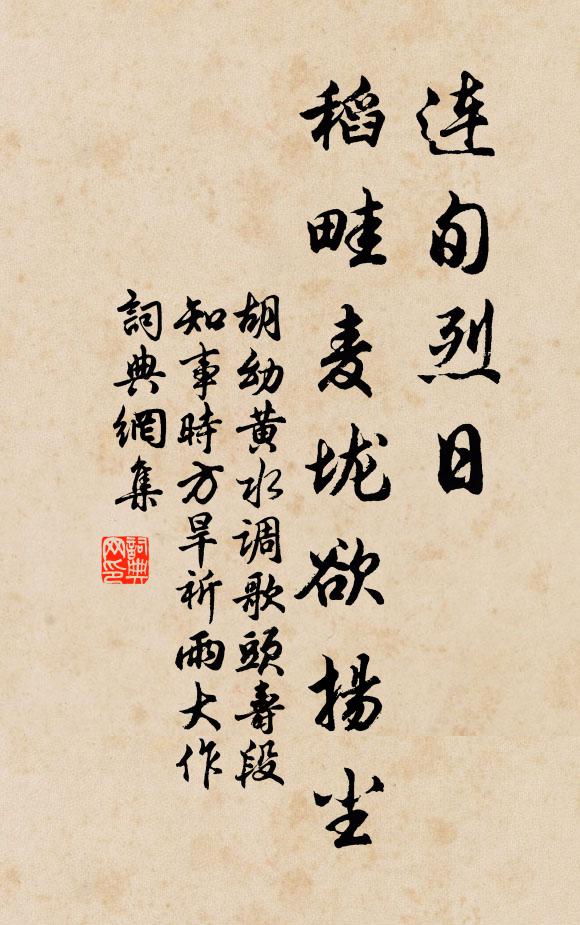 连旬烈日
稻畦麦垅欲揚尘
胡幼黄水调歌頭壽段
知事時方旱祈雨大作
詞典網集
詞典网印